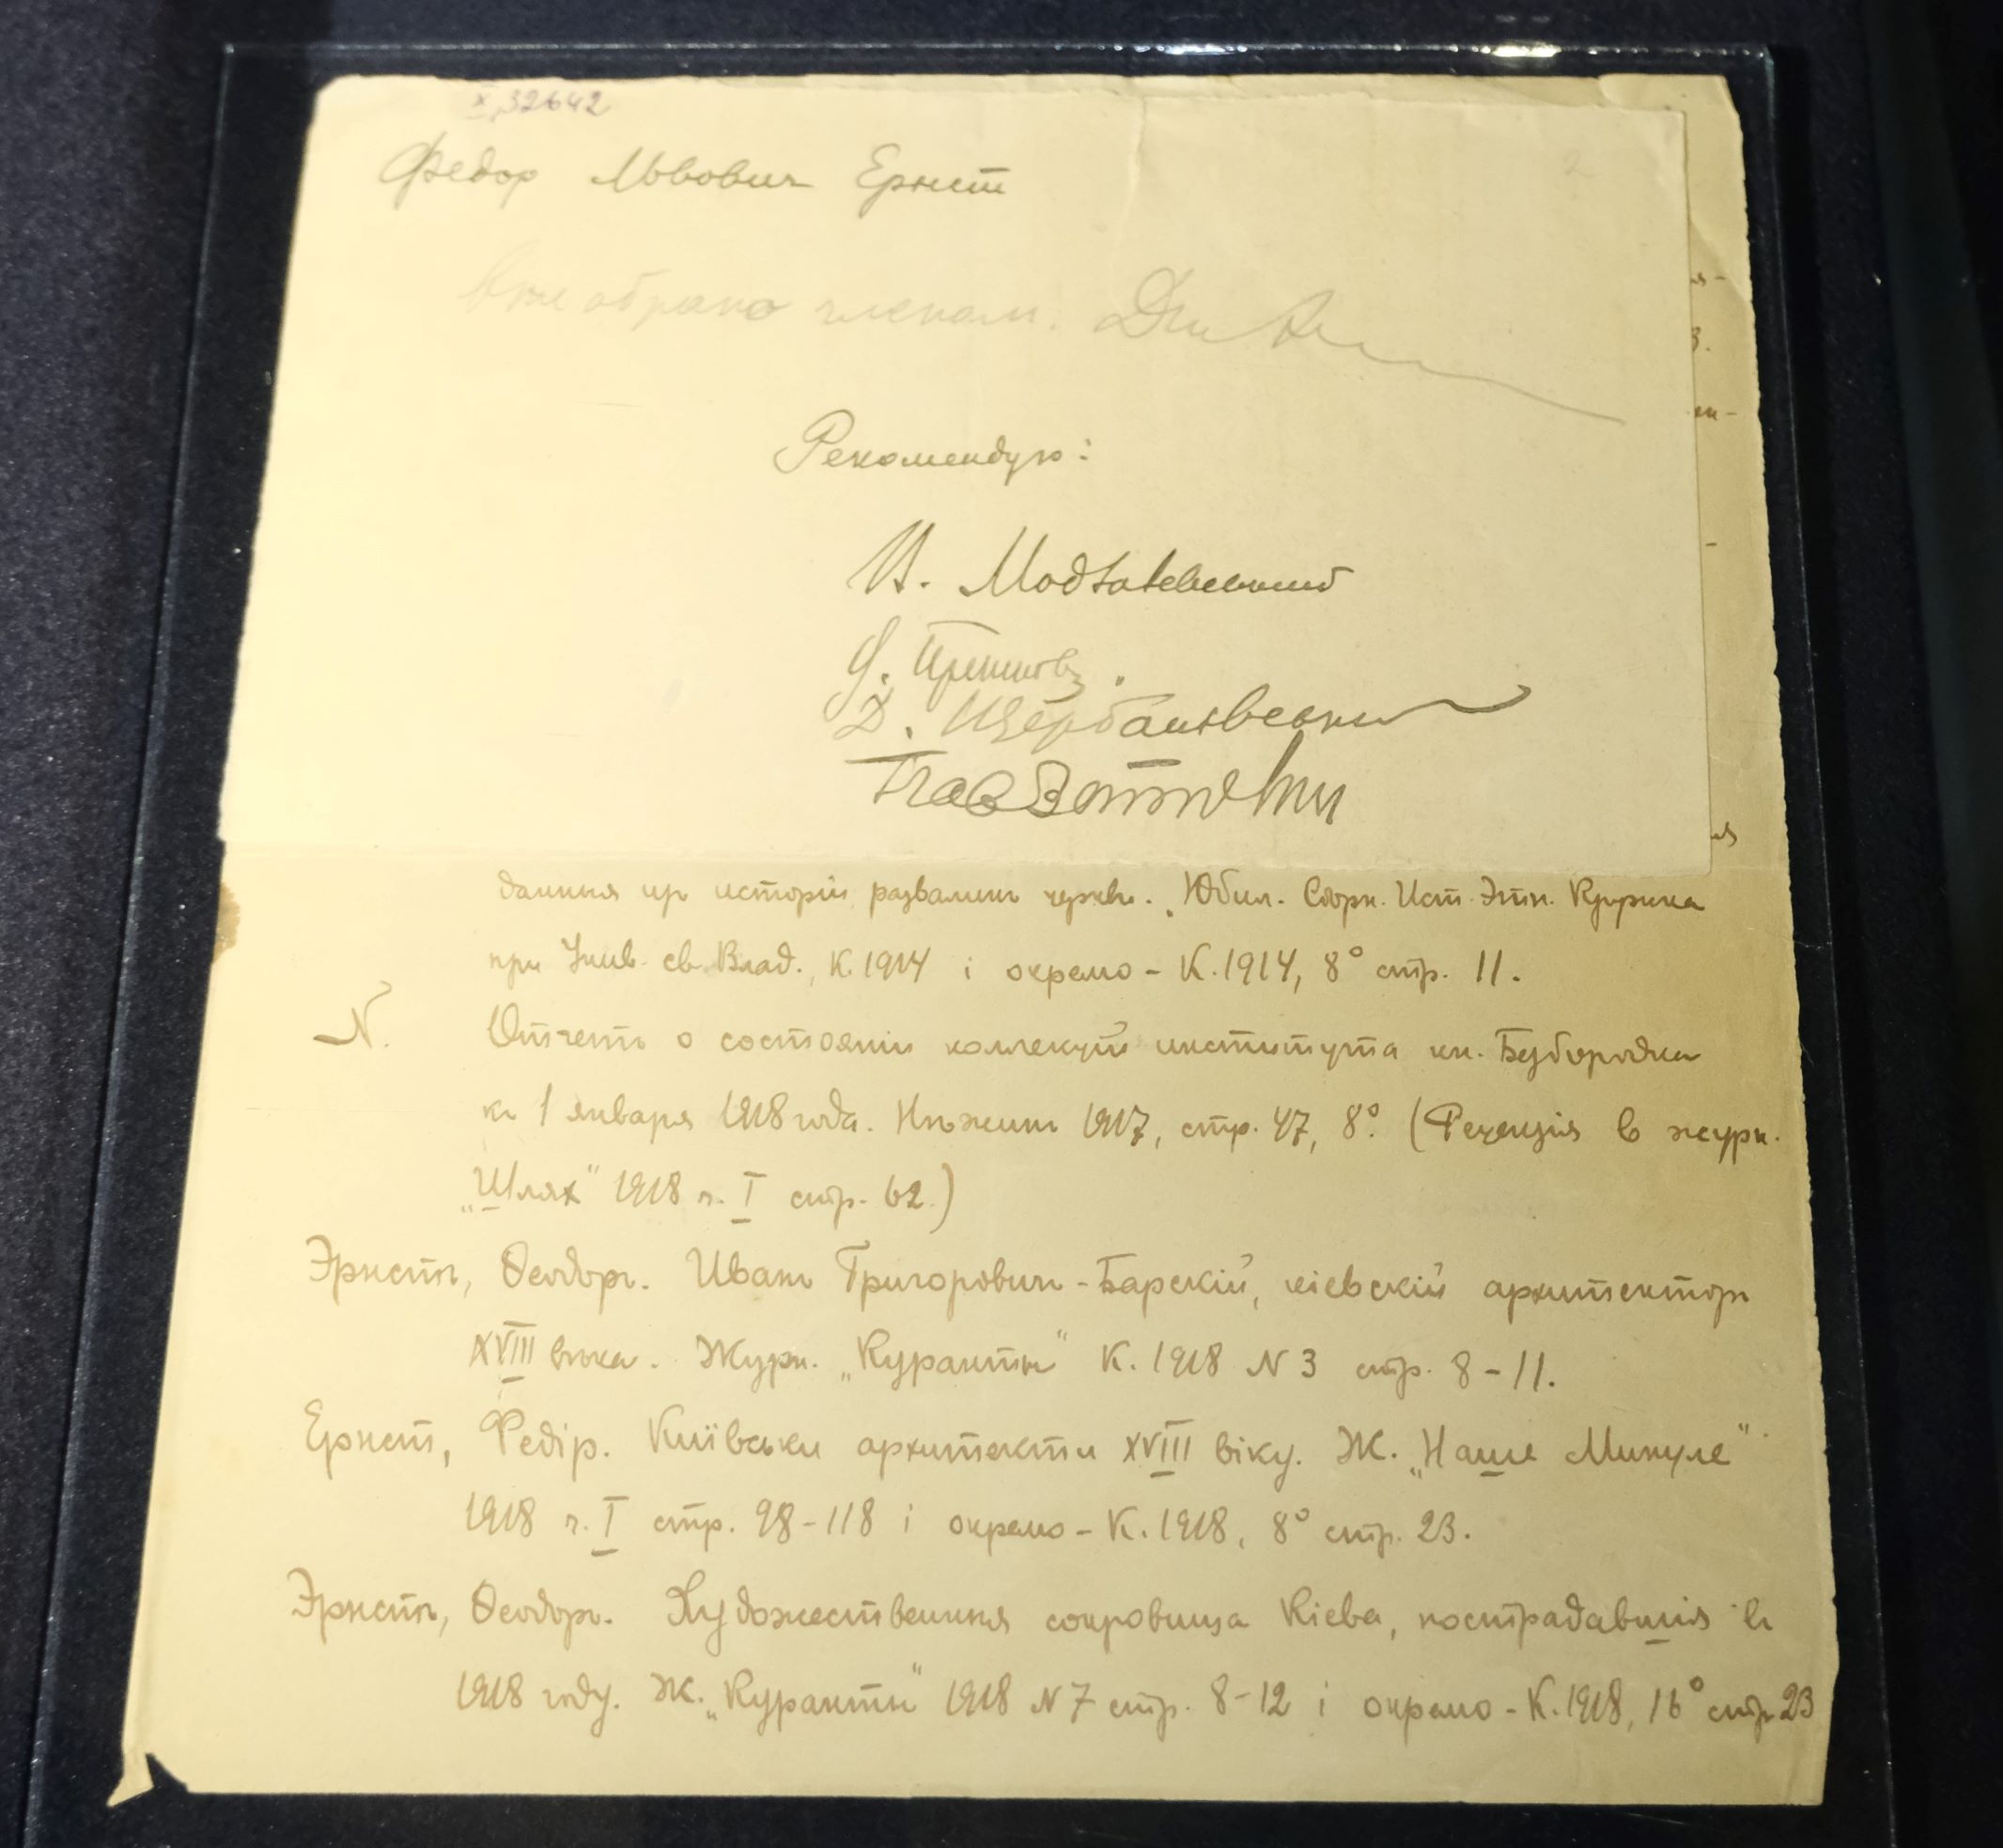 X, 32642
Федор Львович Ернст
Вже обрано членом.
Рекомендую:
Модзалевський
Д. Щербаківський
данныя из исторіи развалинъ церкви. Юбил. Сборн. Ист. Этн. Кружка
при Унив. св. Влад., К. 1914 і окремо – К. 1914, 8° стр. 11.
N. Отчетъ о состояніи коллекцій института кн. Безбородка
къ 1 января 1918 года. Нѣжинъ 1917, стр. 47, 8°. (Рецензія в журн.
„Шлях“ 1918 г. I стр. 62.)
Эрнстъ, Ѳеодоръ. Иванъ Григоровичъ-Барскій, кіевскій архитекторъ
XVIII вѣка. Журн. „Куранты“ К. 1918 N 3 стр. 8–11.
Ернст, Федір. Київськи архитекти XVIII віку. Ж. „Наше Минуле“
1918 г. I стр. 98–118 і окремо – К. 1918, 8° стр. 23.
Эрнстъ, Ѳеодоръ. Художественныя сокровища Кіева, пострадавшія въ
1918 году. Ж. „Куранты“ 1918 N 7 стр. 8–12 і окремо – К. 1918, 16° стр. 23